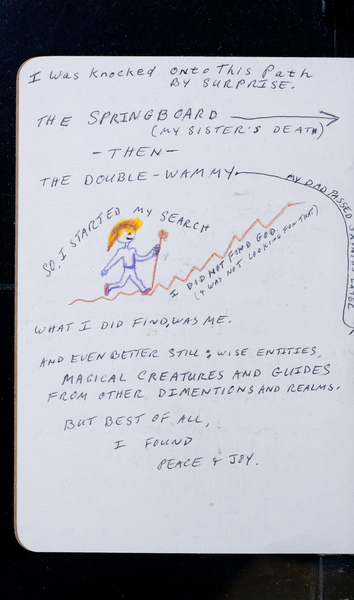 I Was Knocked Onto This Path
BY SURPRISE.
THE SPRINGBOARD
(MY SISTER'S DEATH)
- THEN -
THE DOUBLE-WAMMY
MY DAD PASSED
LATER
SO, I STARTED MY SEARCH
I DID NOT FIND GOD
(I WAS NOT LOOKING FOR THAT)
WHAT I DID FIND, WAS ME.
AND EVEN BETTER STILL: WISE ENTITIES,
MAGICAL CREATURES AND GUIDES
FROM OTHER DIMENTIONS AND REALMS.
BUT BEST OF ALL,
I FOUND
PEACE & JOY.